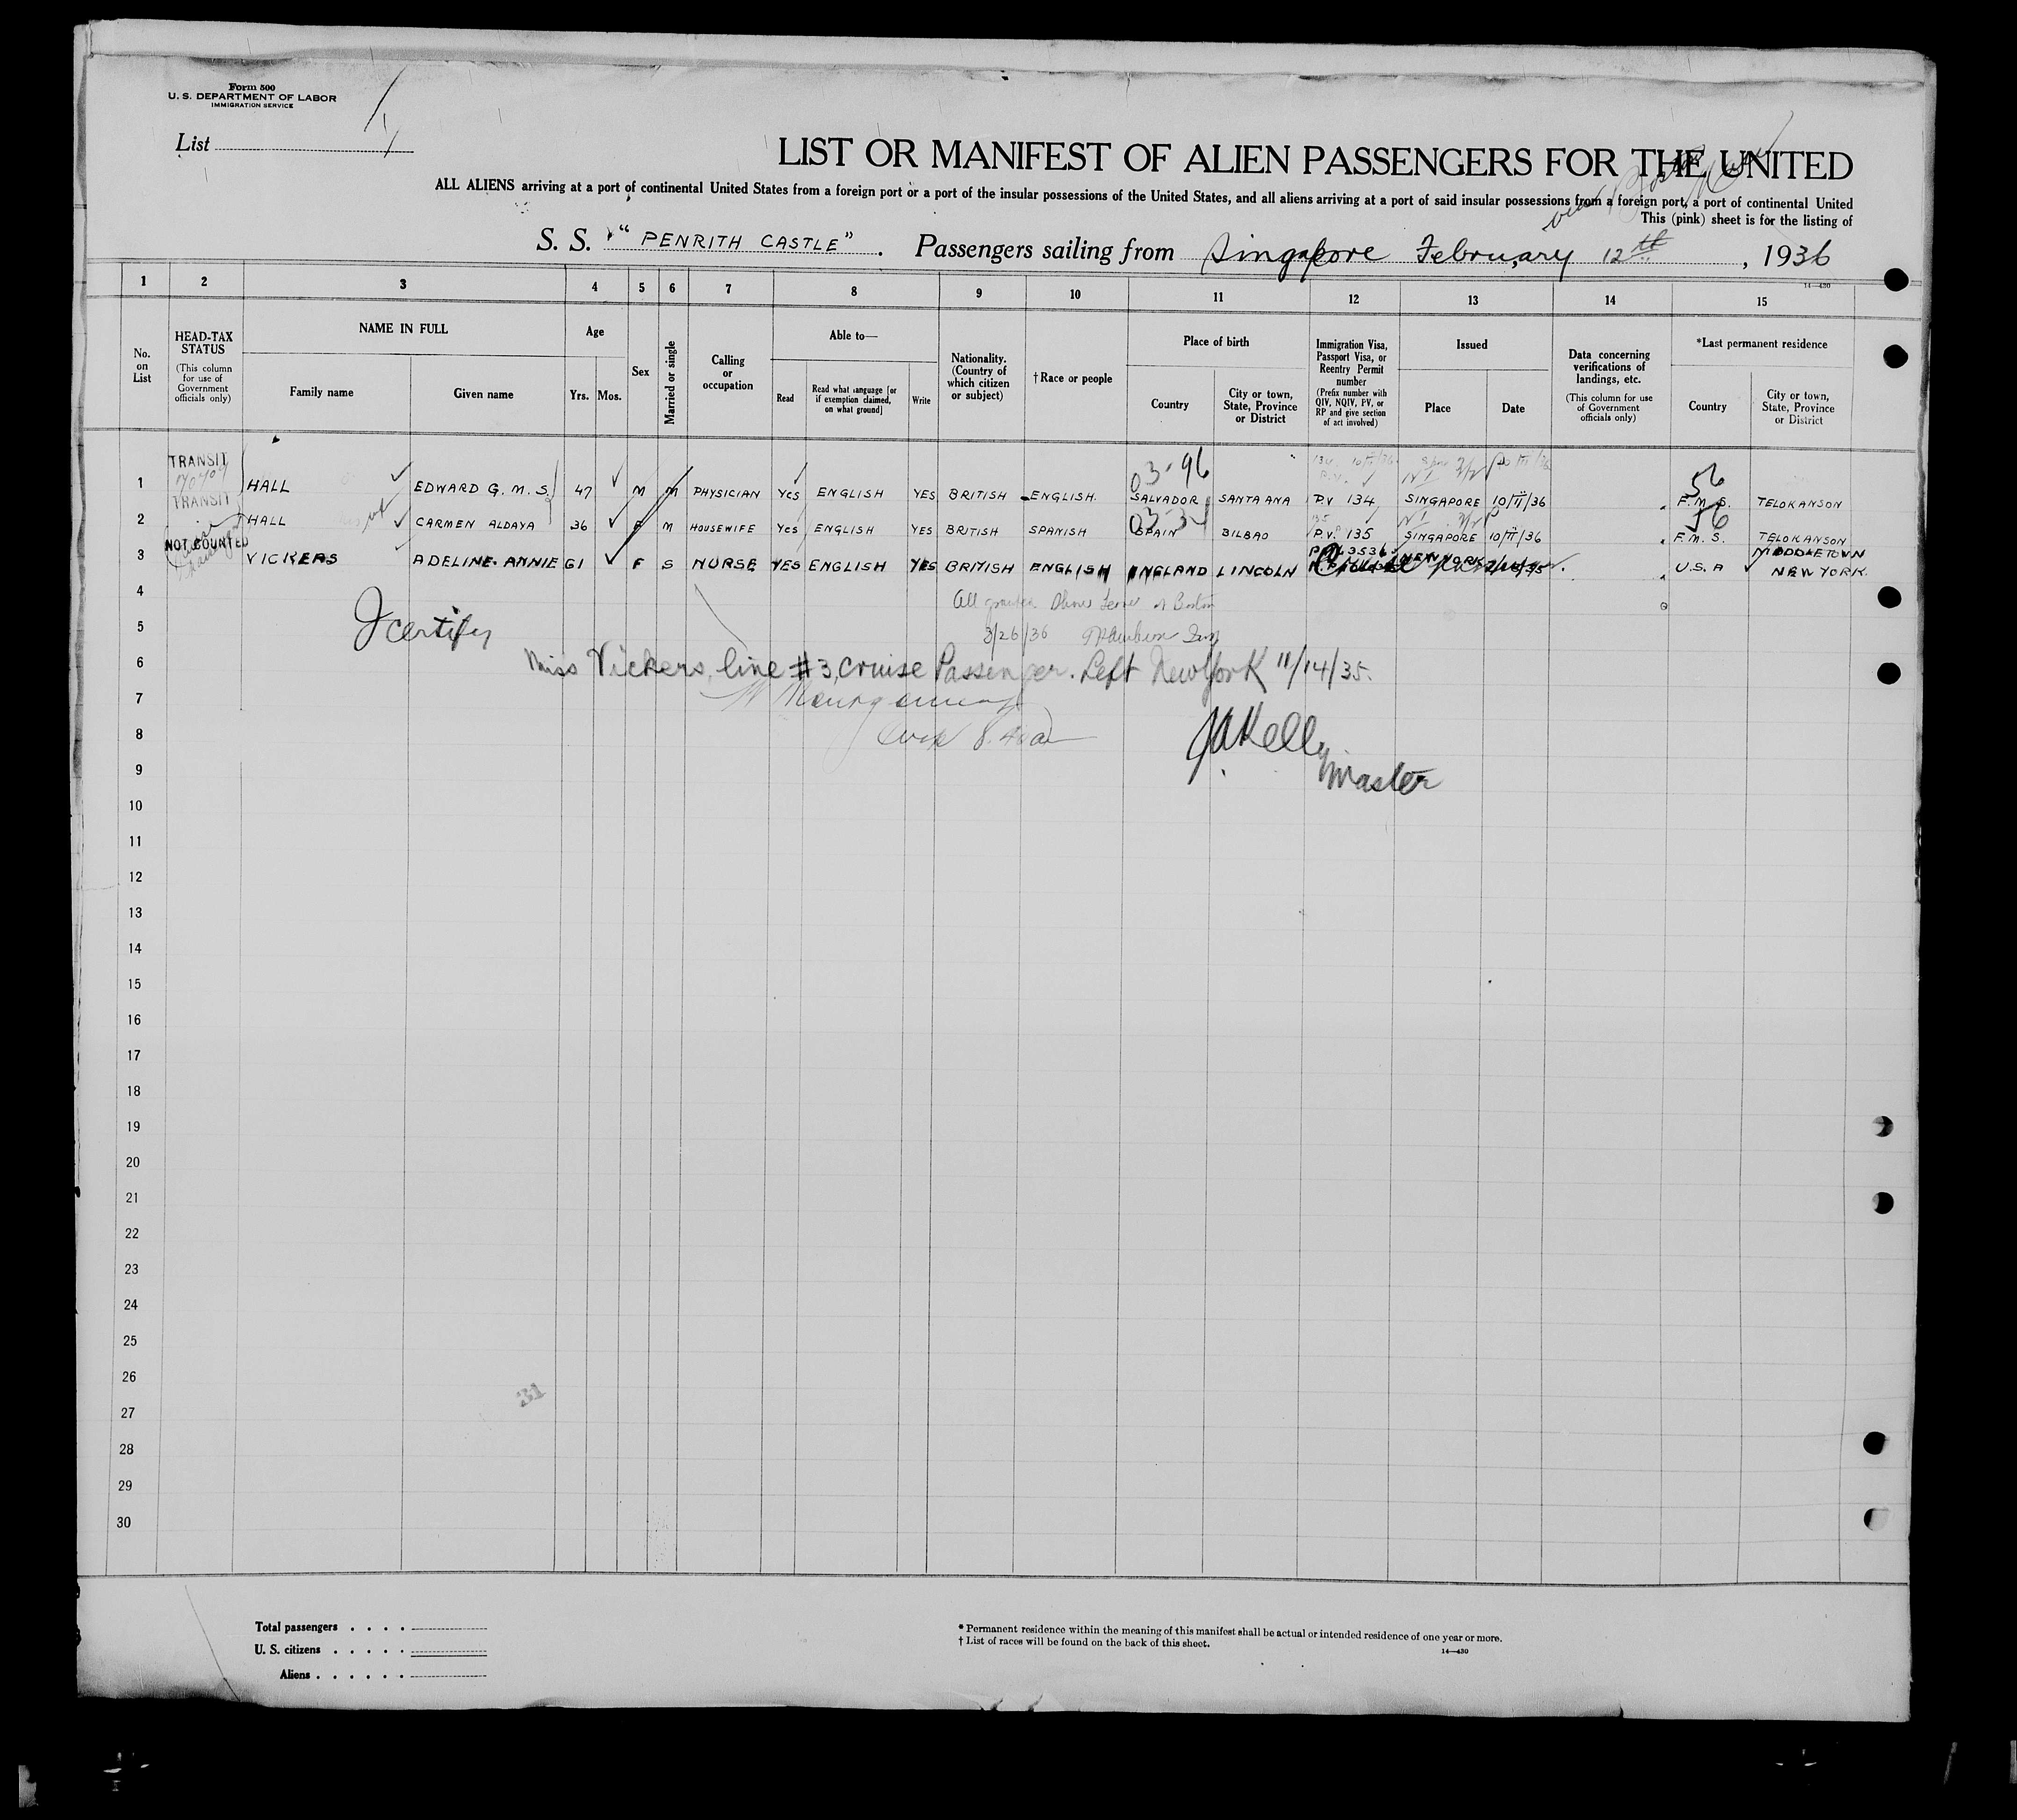 Form 500
U. S. DEPARTMENT OF LABOR
IMMIGRATION SERVICE
List 1
LIST OR MANIFEST OF ALIEN PASSENGERS FOR THE UNITED
ALL ALIENS arriving at a port of continental United States from a foreign port or a port of the insular possessions of the United States, and all aliens arriving at a port of said insular possessions from a foreign port, a port of continental United
This (pink) sheet is for the listing of
S. S. "PENRITH CASTLE". Passengers sailing from Singapore February 12th, 1936
14—430
1 2 3 4 5 6 7 8 9 10 11 12 13 14 15
No. on List
HEAD-TAX STATUS (This column for use of Government officials only)
NAME IN FULL
Family name
Given name
Age
Yrs. Mos.
Sex
Married or single
Calling or occupation
Able to—
Read
Read what language [or if exemption claimed, on what ground]
Write
Nationality. (Country of which citizen or subject)
†Race or people
Place of birth
Country
City or town, State, Province or District
Immigration Visa, Passport Visa, or Reentry Permit number (Prefix number with QIV, NQIV, PV, or RP and give section of act involved)
Issued
Place
Date
Data concerning verifications of landings, etc. (This column for use of Government officials only)
*Last permanent residence
Country
City or town, State, Province or District
TRANSIT 03-96 56
1 HALL EDWARD G. M. S. 47 M M PHYSICIAN Yes ENGLISH YES BRITISH ENGLISH. SALVADOR SANTA ANA P.V 134 SINGAPORE 10/II/36 F. M. S. TELOKANSON
TRANSIT 56
2 HALL CARMEN ALDAYA 36 F M HOUSEWIFE Yes ENGLISH YES BRITISH SPANISH SPAIN BILBAO P.V. 135 SINGAPORE 10/II/36 F. M. S. TELOKANSON
NOT COUNTED
3 VICKERS ADELINE ANNIE 61 F S NURSE YES ENGLISH YES BRITISH ENGLISH ENGLAND LINCOLN NEW YORK U.S.A MIDDLETOWN NEW YORK.
4
All
5 I certify 3/26/36
6 Miss Vickers, line #3, cruise Passenger. Left New York 11/14/35.
7
8 JAKelly
9 Master
10
11
12
13
14
15
16
17
18
19
20
21
22
23
24
25
26
31
27
28
29
30
Total passengers . . . .
U. S. citizens . . . . .
Aliens . . . . . .
* Permanent residence within the meaning of this manifest shall be actual or intended residence of one year or more.
† List of races will be found on the back of this sheet.
14—430